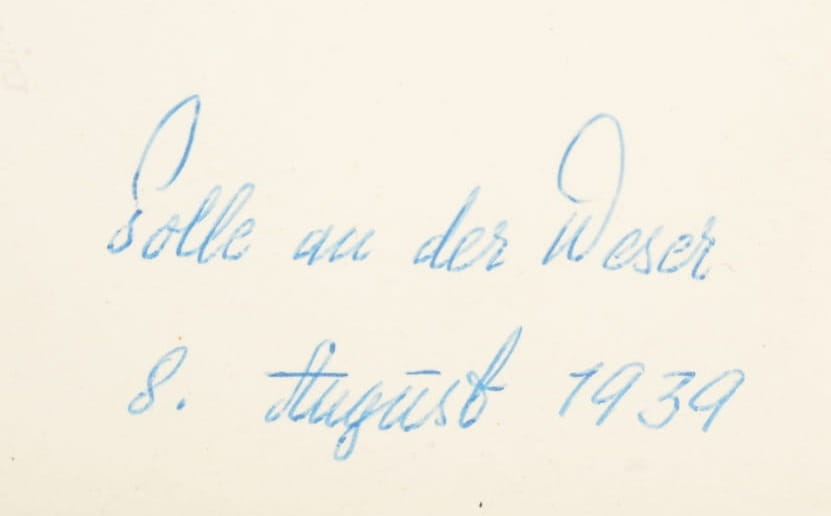 Polle an der Weser
8. August 1939